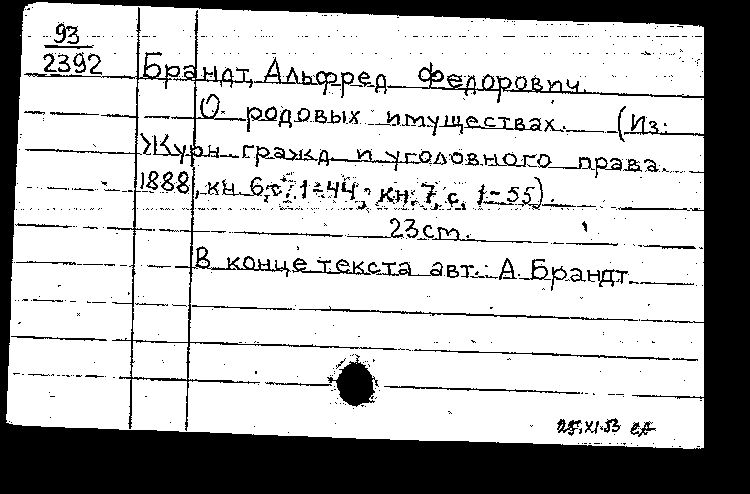 93
2392
Брандт, Альфред Федорович.
О родовых имуществах. (Из:
Журн. гражд. и уголовного права.
1888, кн. 6, с. 1-44; кн. 7, с. 1-55).
23 cm.
В конце текста авт.: А. Брандт.